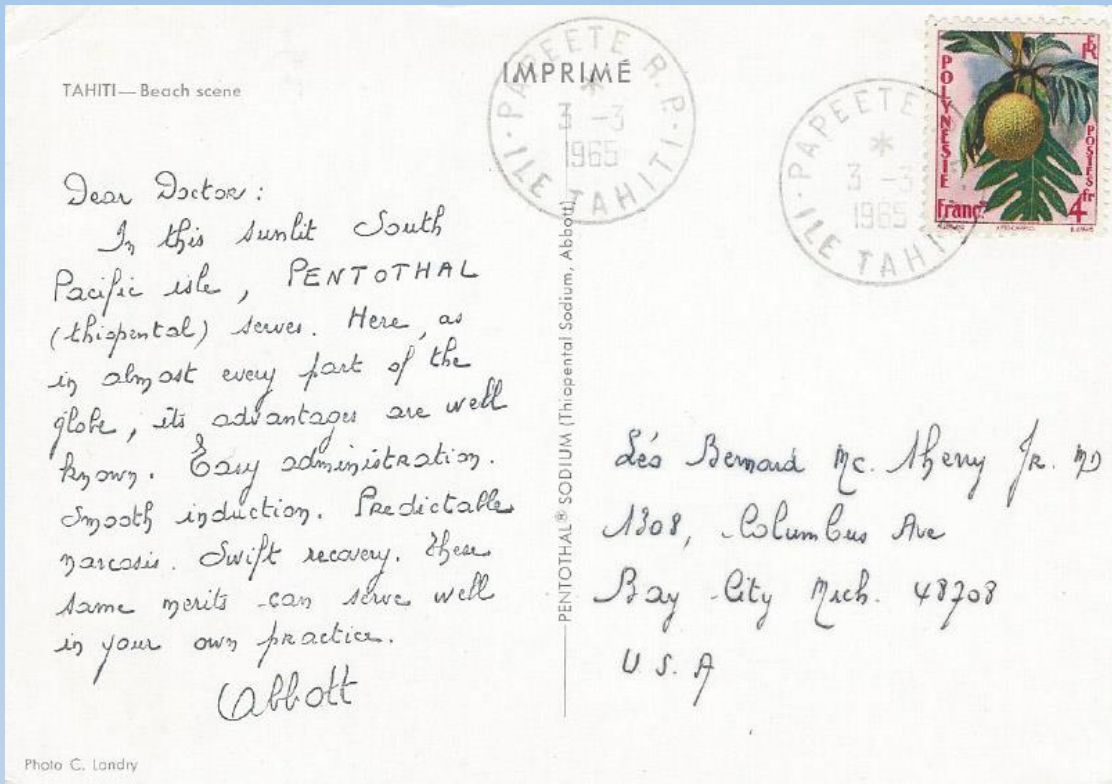 TAHITI—Beach scene
IMPRIMÉ
PAPEETE R.P.
3 -3
1965
ILE TAHITI
PAPEETE
3 -3
1965
ILE TAHITI
POLYNESIE
Franç.se
RF
POSTES
4 fr
Dear Doctor:
In this sunlit South
Pacific isle, PENTOTHAL
(thiopental) serves. Here, as
in almost every part of the
globe, its advantages are well
known. Easy administration.
Smooth induction. Predictable
narcosis. Swift recovery. These
same merits can serve well
in your own practice.
Abbott
PENTOTHAL® SODIUM (Thiopental Sodium, Abbott)
Léo Bernard Mc. Sherry Jr. MD
1308, Columbus Ave
Bay City Mich. 48708
U.S.A
Photo C. Landry